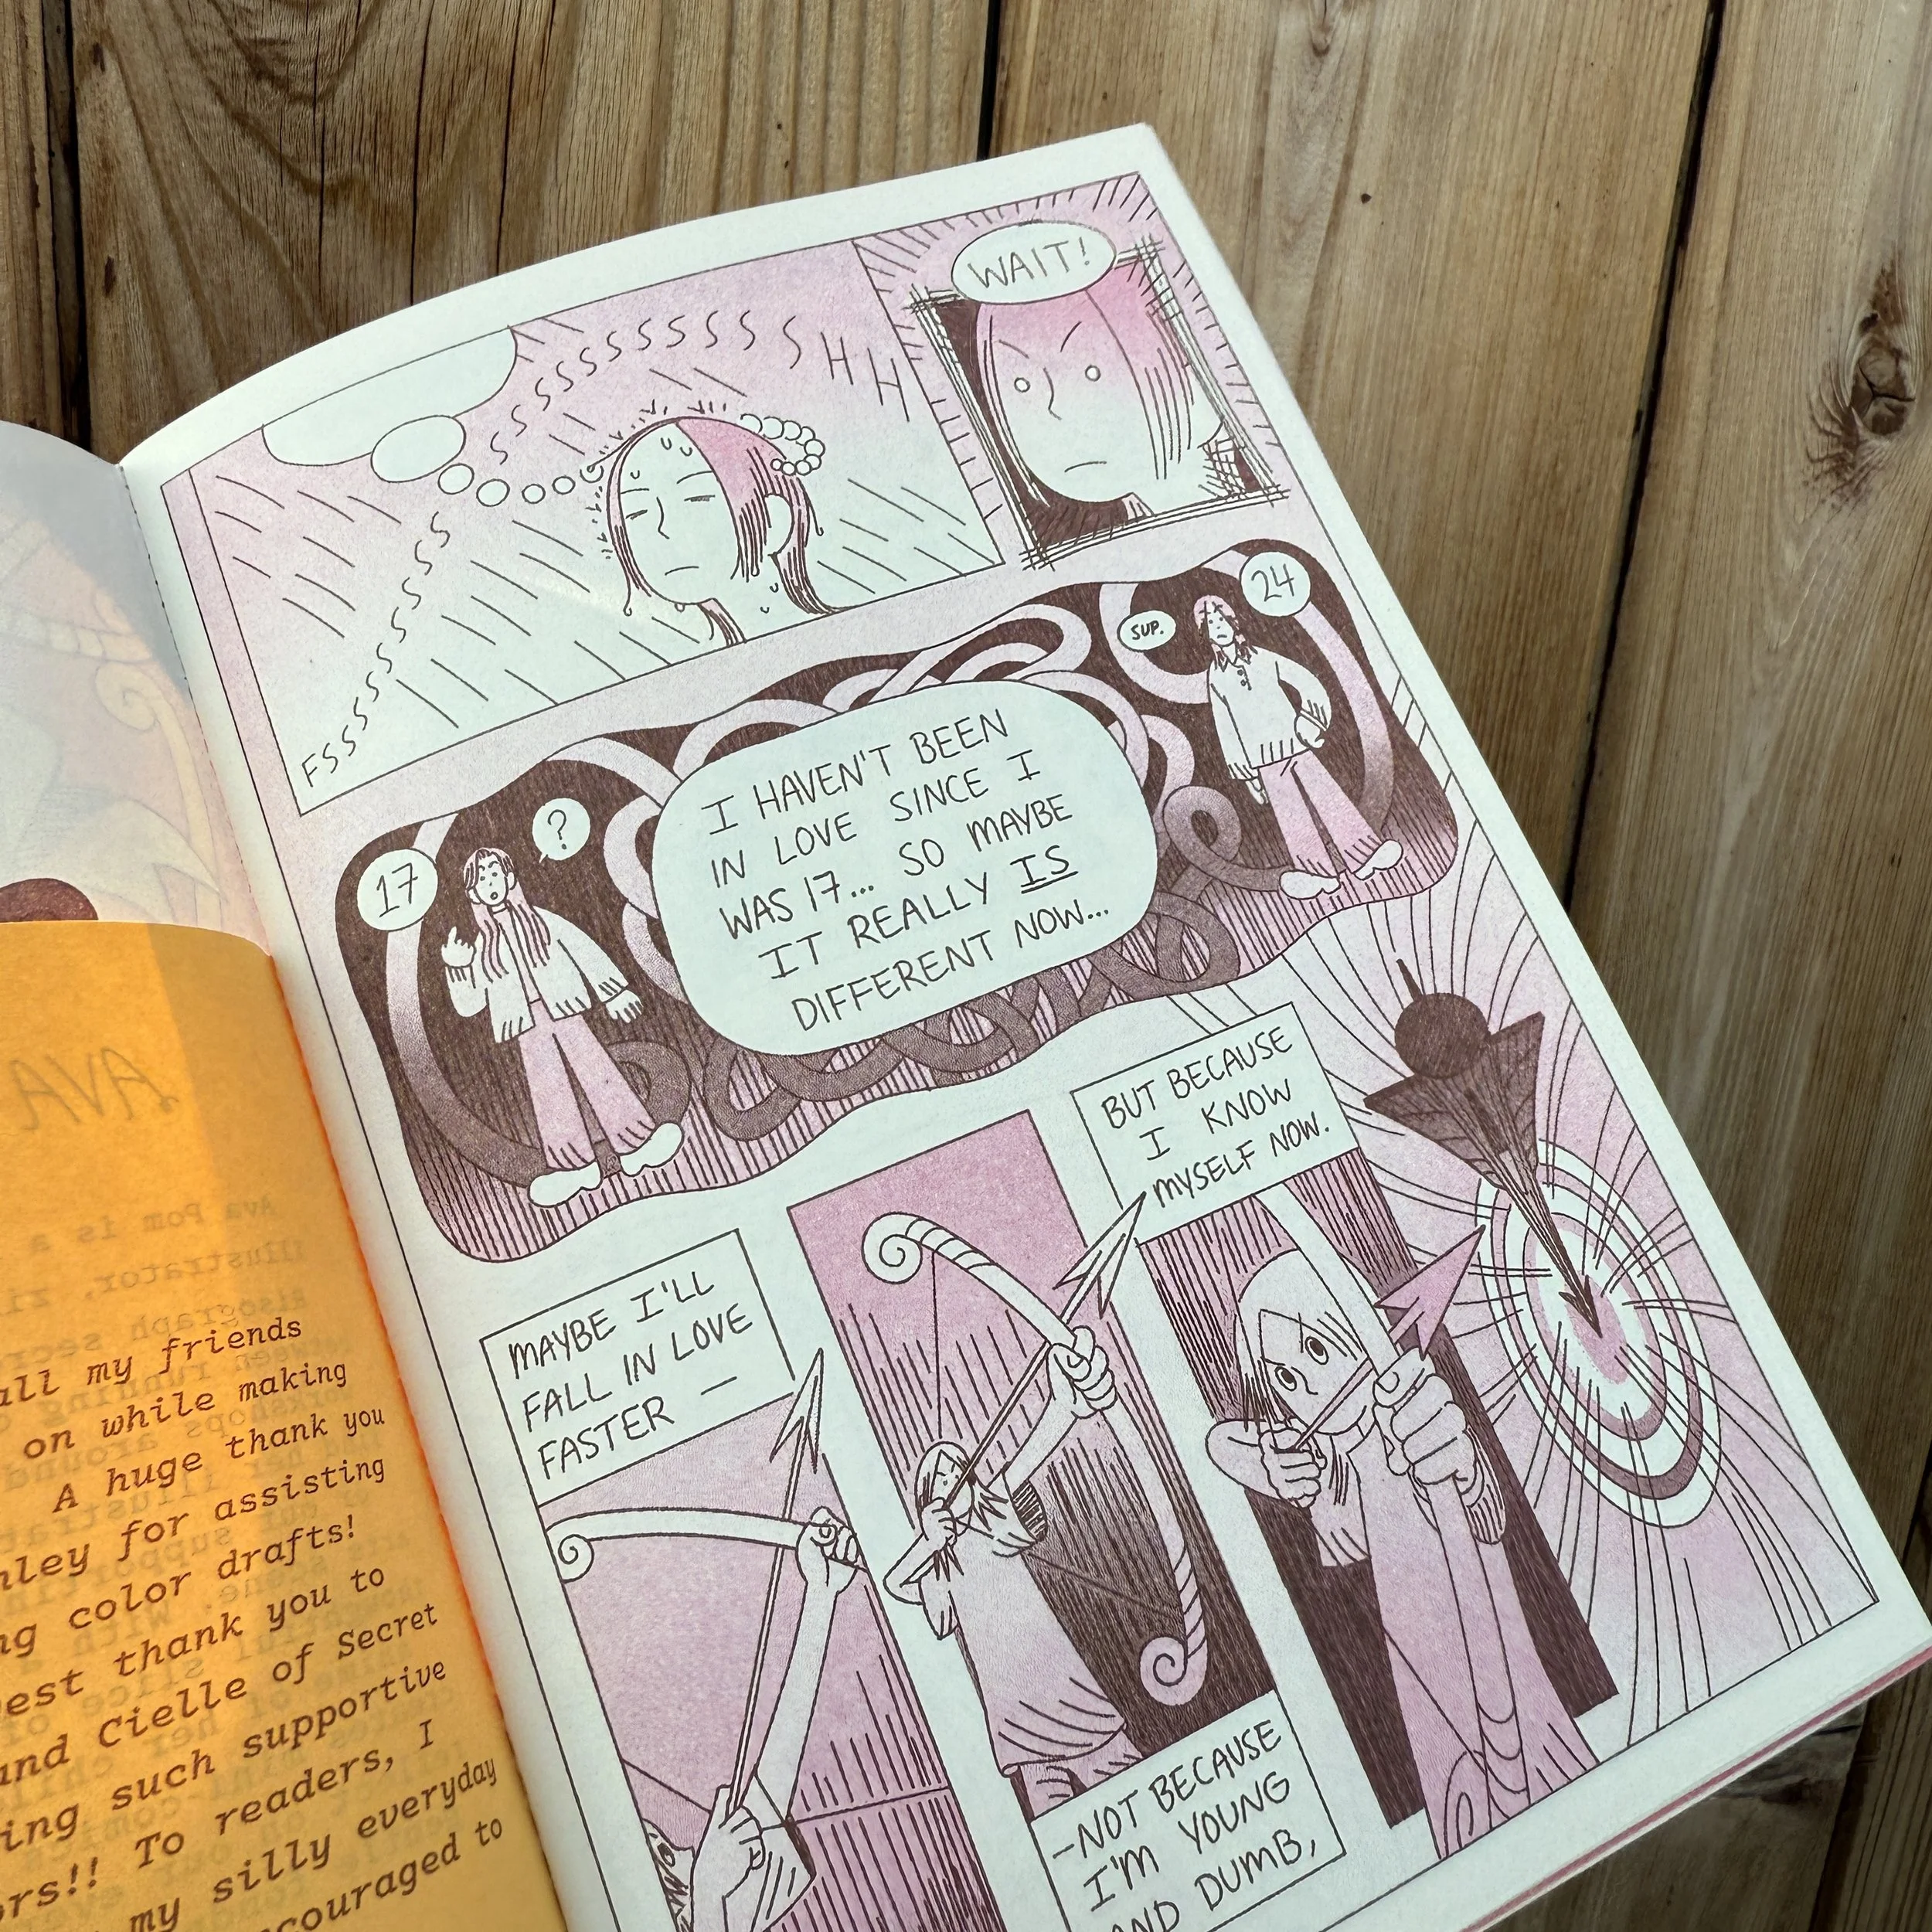 FSSSSSSSSSSSSSSSSSSSSSSSSHH
WAIT!
17
?
I HAVEN'T BEEN
IN LOVE SINCE I
WAS 17... SO MAYBE
IT REALLY IS
DIFFERENT NOW...
SUP.
24
MAYBE I'LL
FALL IN LOVE
FASTER —
—NOT BECAUSE
I'M YOUNG
AND DUMB,
BUT BECAUSE
I KNOW
MYSELF NOW.
AVA
Ava Pom is a
illustrator,
all my friends
on while making
A huge thank you
for assisting
color drafts!
thank you to
and Cielle of Secret
such supportive
To readers, I
my silly everyday
to